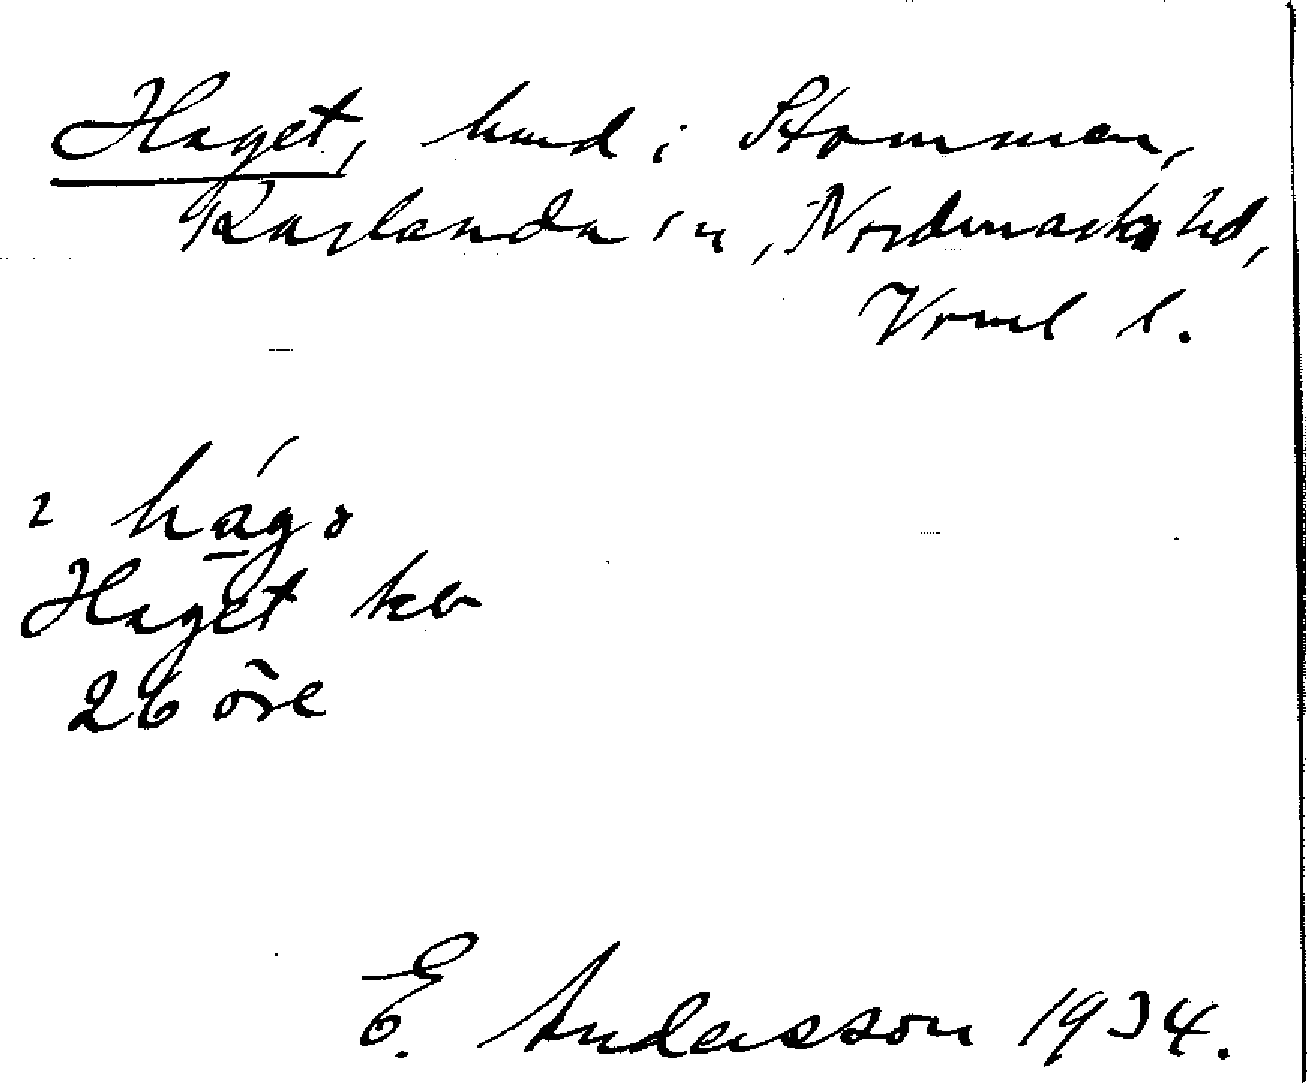 Haget, hmd i Stommen,
Karlanda sn, Nordmarks hd,
Vrml l.
2 hág.
Haget ke
26 öre
E. Andersson 1934.